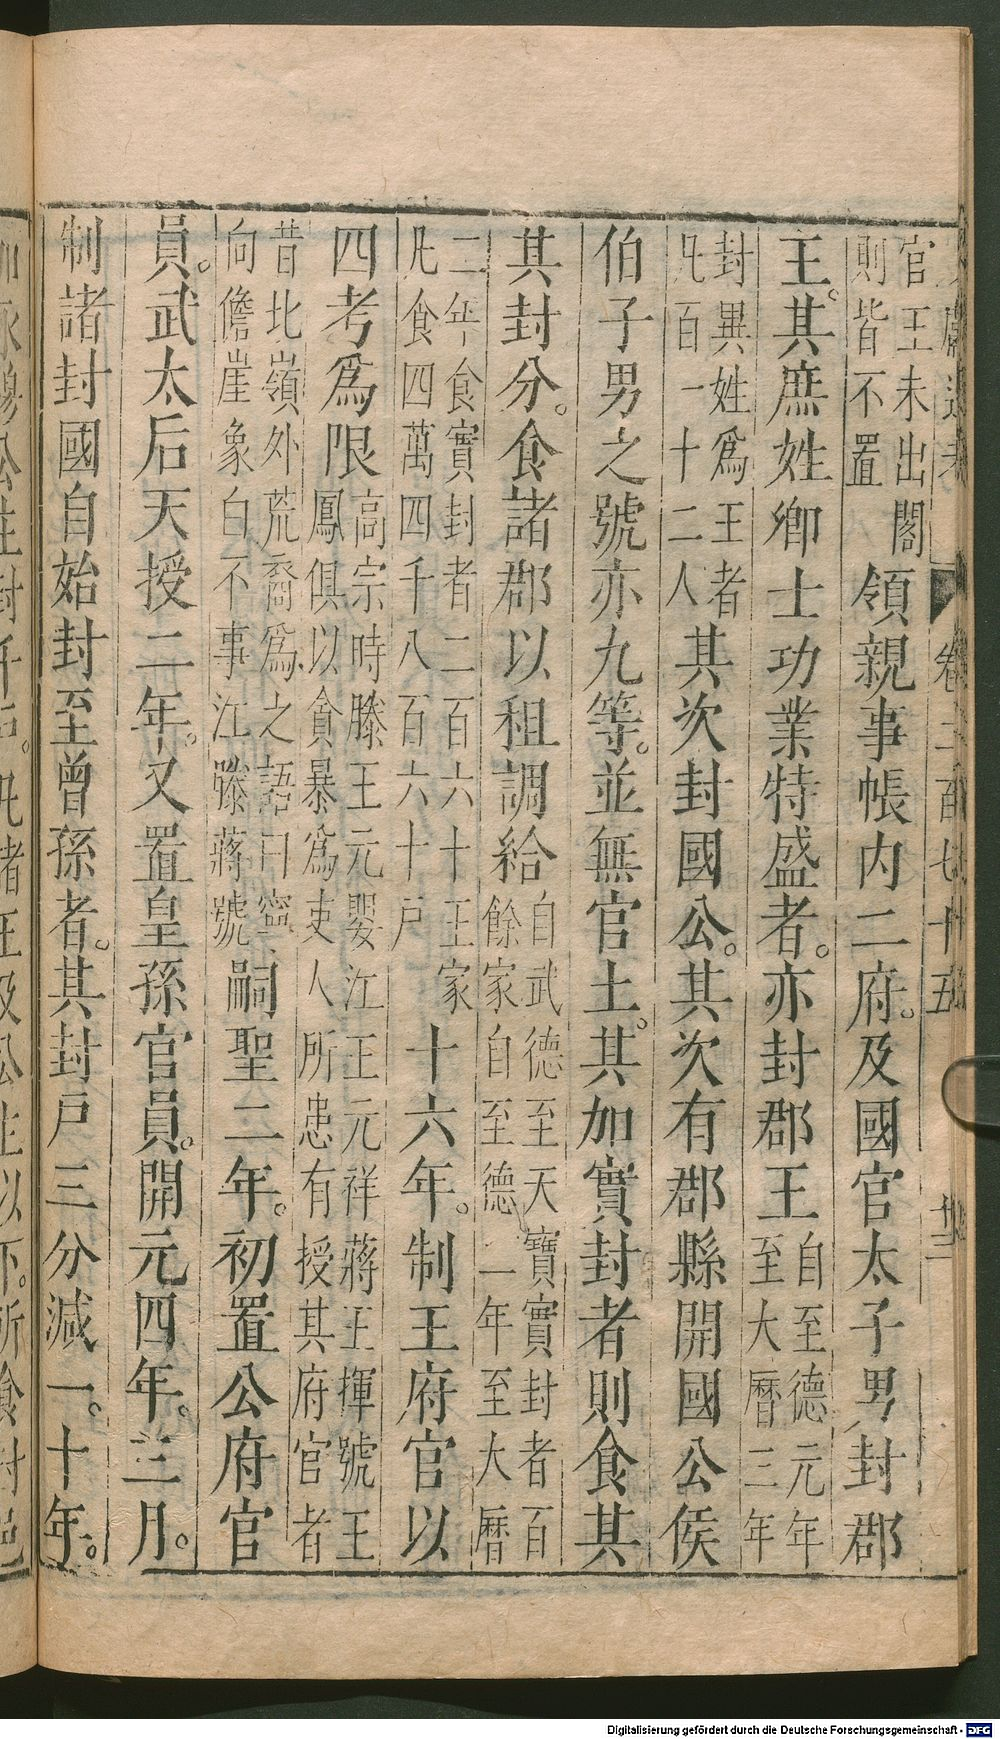 官王未出閣
則皆不置
領親事帳内二府。及國官太子男封郡
王。其庶姓卿士功業特盛者。亦封郡王
自至德元年
至大曆三年
封異姓爲王者
凡百一十二人
其次封國公。其次有郡縣開國公侯
伯子男之號亦九等。並無官土。其加實封者則食其
其封分。食諸郡以租調給
自武德至天寶實封者百
餘家自至德二年至大曆
二年食實封者二百六十王家
凡食四萬四千八百六十戸
十六年。制王府官以
四考爲限
高宗時滕王元嬰江王元祥蔣王揮號王
鳳俱以貪暴爲吏人所患有授其府官者
昔比嶺外荒裔爲之語曰寧
向儋崖象白不事江滕蔣號
嗣聖二年。初置公府官
員。武太后天授二年。又置皇孫官員。開元四年。三月。
制諸封國自始封至曾孫者。其封戸三分減一。十年。
卷二百七十五
Digitalisierung gefördert durch die Deutsche Forschungsgemeinschaft - DFG